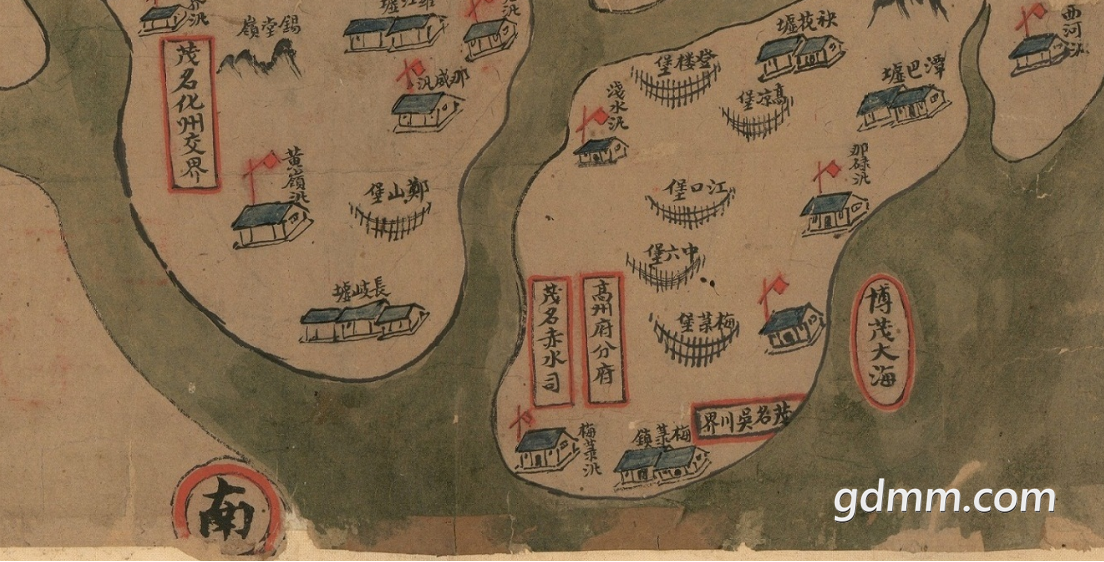 西河汛
錫堂嶺
茂名化州交界
那咸汛
秧枝墟
登楼堡
潭巴墟
高凉堡
淺水汛
黄嶺汛
鄭山堡
江口堡
那碌汛
中六堡
長岐墟
茂名赤水司
高州府分府
梅菉堡
博茂大海
茂名吳川界
梅菉汛
梅菉鎮
南
gdmm.com